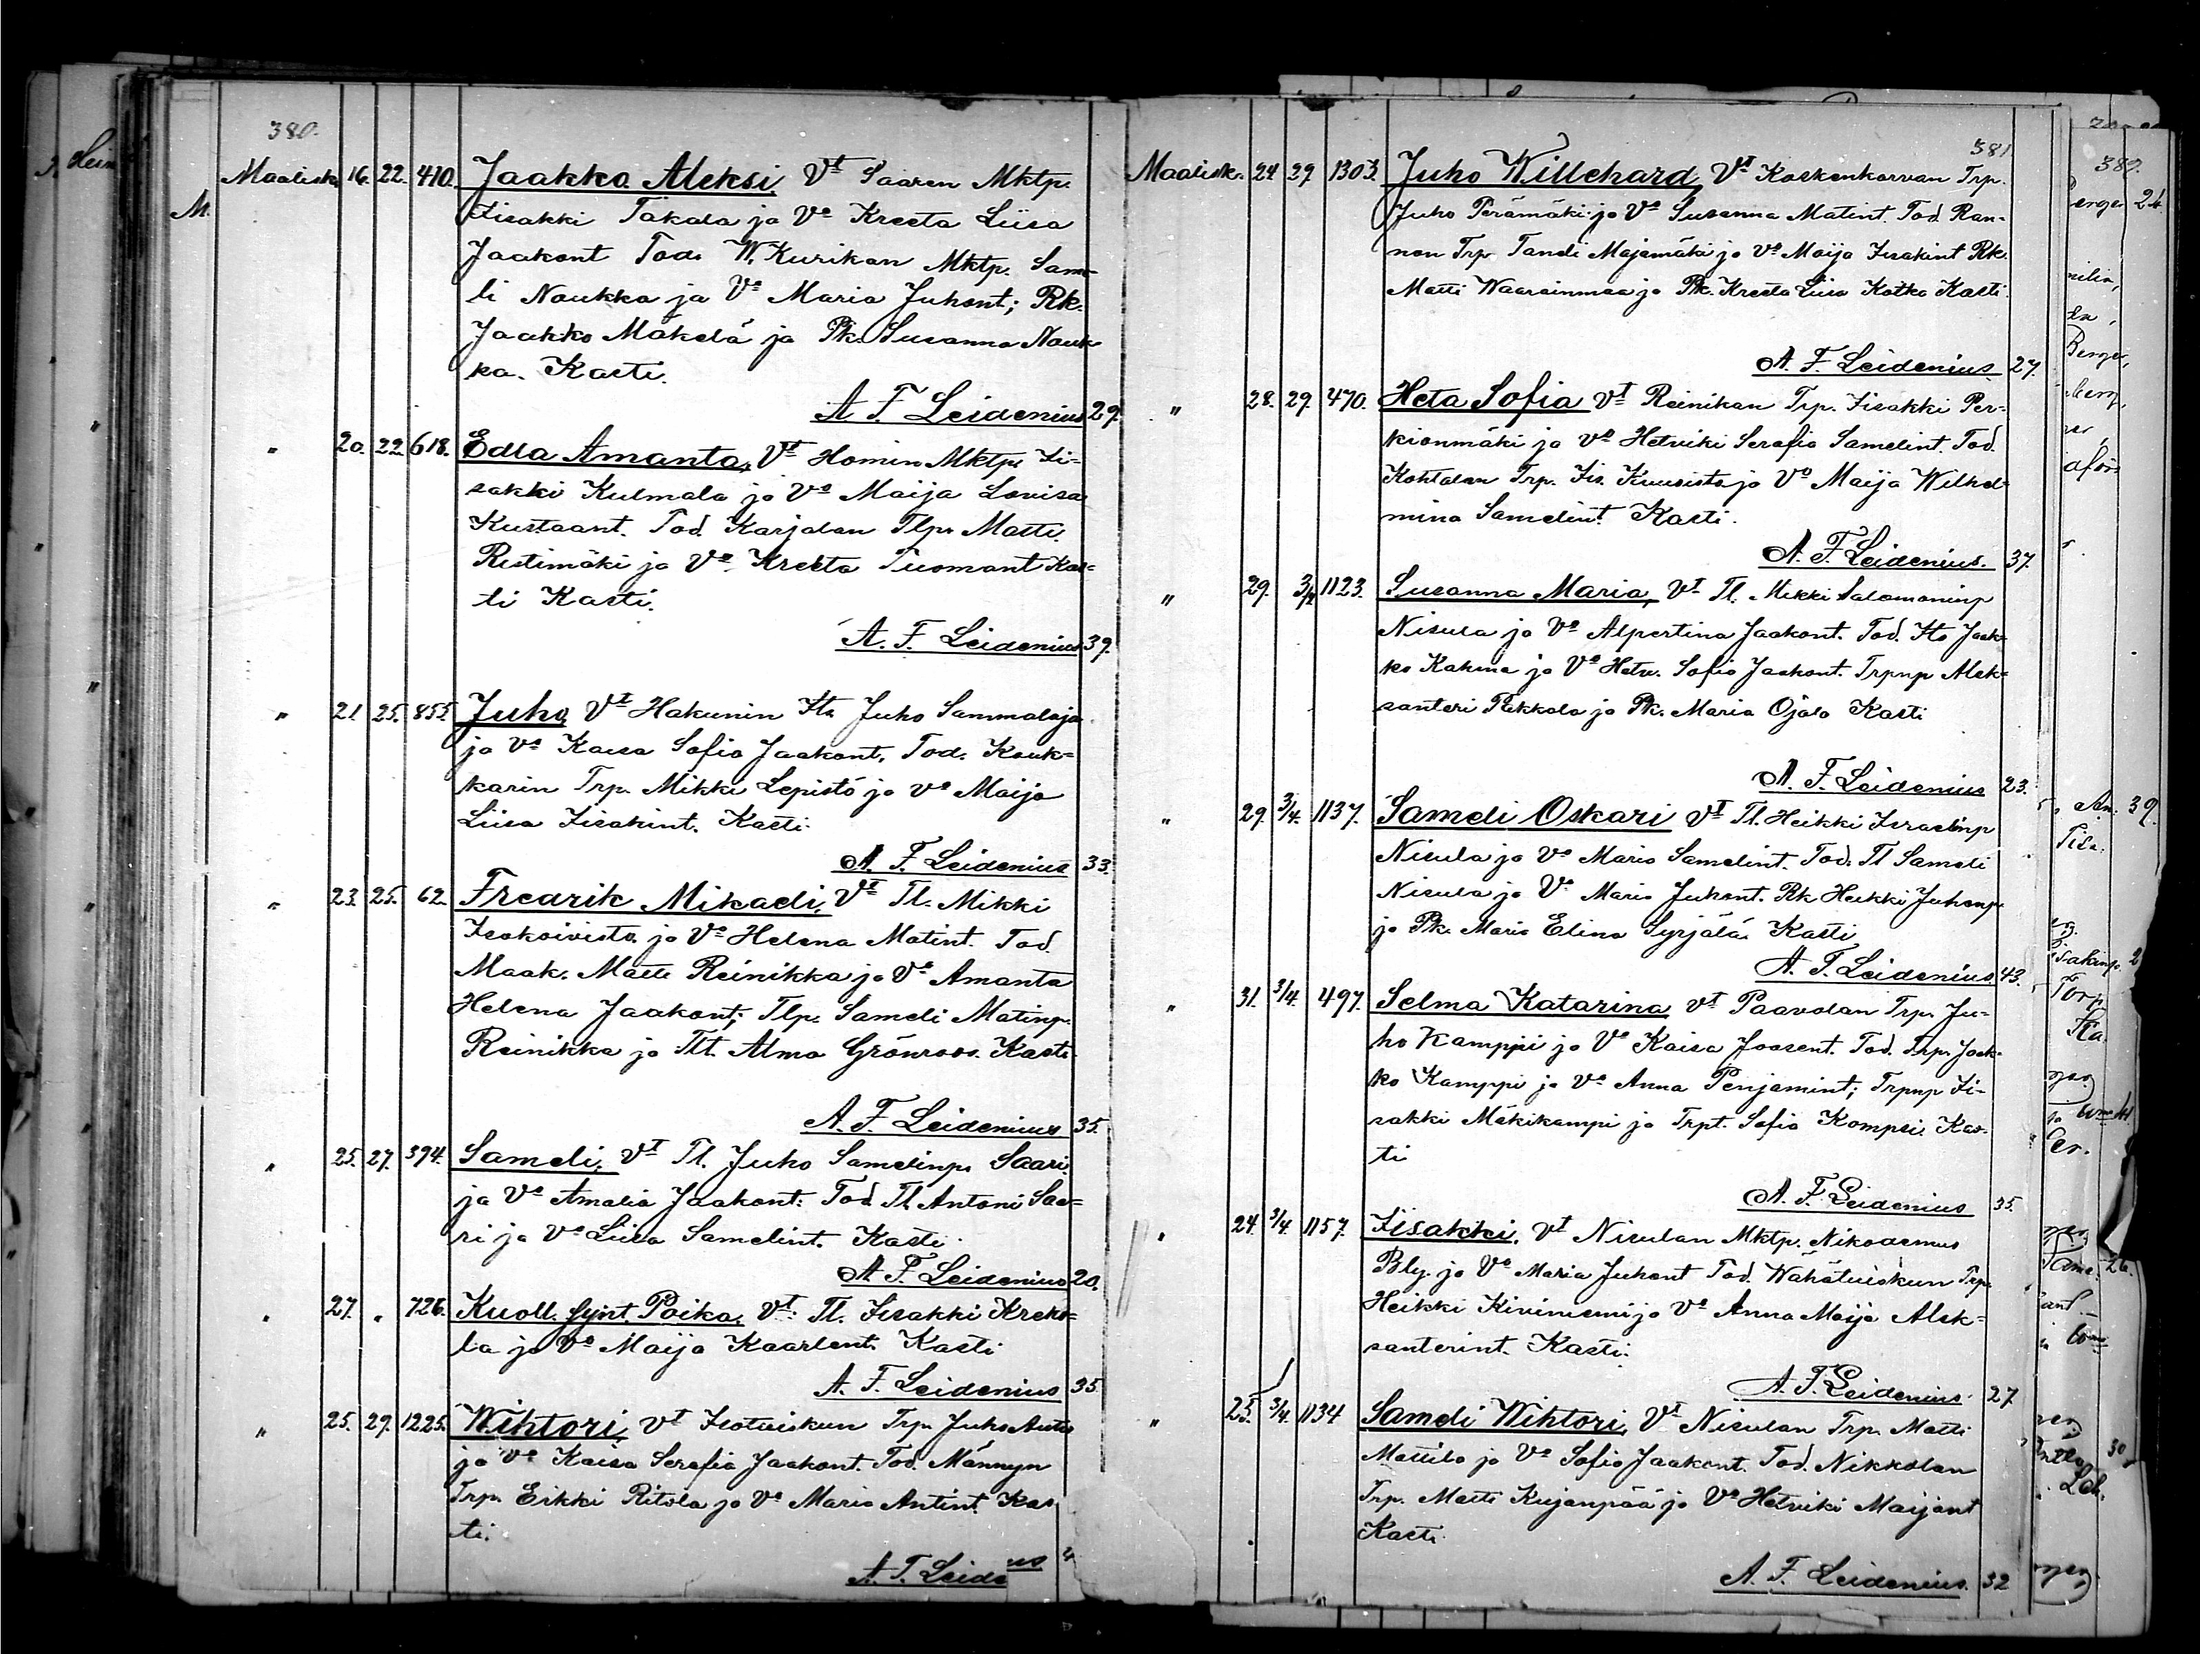 380.
Maalisk. 16. 22. 410. Jaakko Aleksi, Vt Saaren Mktp.
Iisakki Takala ja Vo Kreeta Liisa
Jaakont Tod. W. Kurikan Mktp. Same-
li Naukka ja Vo Maria Juhont; Rk.
Jaakko Mäkelä ja Pk. Susanna Nauk-
ka. Kasti.
A. F. Leidenius 29.
" 20. 22. 618. Edla Amanta, Vt Homin Mktp. Ii=
sakki Kulmala ja Vo Maija Lovisa
Kustaant. Tod. Karjalan Tlp. Matti
Ristimäki ja Vo Kreeta Tuomant Kas=
ti Kasti.
A. F. Leidenius 39.
" 21. 25. 855. Juho, Vt Hakunin Its. Juho Sammaloja
ja Vo Kaisa Sofia Jaakont. Tod. Kouk=
karin Trp. Mikki Lepistö ja Vo Maija
Liisa Iisakint. Kasti.
A. F. Leidenius 33.
" 23. 25. 62. Fredrik Mikaeli, Vt Tl. Mikki
Isokoivisto ja Vo Helena Matint. Tod.
Maak. Matti Reinikka ja Vo Amanta
Helena Jaakont; Tlp. Sameli Matinp.
Reinikka ja Tlt. Alma Grönroos. Kasti
A. F. Leidenius 35.
" 25. 27. 394. Sameli, Vt Tl. Juho Samelinp. Saari
ja Vo Amalia Jaakont. Tod. Tl. Antoni Saa=
ri ja Vo Liisa Samelint. Kasti.
A. F. Leidenius 20.
" 27. " 726. Kuoll. synt. Poika, Vt. Tl. Iisakki Kreko=
la ja Vo Maija Kaarlent. Kasti
A. F. Leidenius 35.
" 25. 29. 1225. Wihtori, Vt Isotuiskun Trp. Juho
ja Vo Kaisa Serafia Jaakont. Tod. Männyn
Trp. Erkki Ritola ja Vo Maria Antint. Kas
ti.
A. F. Leide us
381
Maalisk. 24. 29. 1303. Juho Willehard, Vt Koskenkorvan Trp.
Juho Perämäki ja Vo Susanna Matint. Tod. Ran-
non Trp. Taneli Majamäki ja Vo Maija Iisakint Rk.
Matti Waarainmaa ja Pk. Kreeta Liisa Kotka Kasti.
A. F. Leidenius 27.
" 28. 29. 470. Heta Sofia Vt Reinikan Trp. Iisakki Per-
kionmäki ja Vo Hetviki Serafia Samelint. Tod.
Kohtalan Trp. Iis. Kuusisto ja Vo Maija Wilhel=
mina Samelint. Kasti.
A. F. Leidenius. 37.
" 29. 3/4 1123. Susanna Maria, Vt Tl. Mikki Salomoninp
Nisula ja Vo Alpertina Jaakont. Tod. Its Jaak=
ko Kahma ja Vo Hetv. Sofia Jaakont. Trpnp Alek=
santeri Pukkala ja Pk. Maria Ojala Kasti
A. F. Leidenius 23.
" 29. 3/4. 1137. Sameli Oskari Vt Tl. Heikki Israelinp
Nisula ja Vo Maria Samelint. Tod. Tl Sameli
Nisula ja Vo Maria Juhont. Rk Heikki Juhonp.
ja Pk. Maria Elina Syrjälä. Kasti
A. F. Leidenius. 43.
" 31. 3/4. 497. Selma Katarina Vt Paavolan Trp. Ju-
ho Kamppi ja Vo Kaisa Joosent. Tod. Trp. Jaak-
ko Kamppi ja Vo Anna Penjamint; Trpnp Ii-
sakki Mäkikamppi ja Trpt. Sofia Kompsi. Kas-
ti
A. F. Leidenius 35.
" 24. 3/4. 1157. Iisakki, Vt Nisulan Mktp. Nikodemus
Bly. ja Vo Maria Juhont Tod. Wähätuiskun Trp.
Heikki Kiviniemi ja Vo Anna Maija Alek=
santerint. Kasti.
A. F. Leidenius 27
" 25. 3/4. 1134 Sameli Wihtori, Vt Nisulan Trp. Matti
Mattila ja Vo Sofia Jaakont. Tod. Nikkolan
Trp. Matti Kujanpää ja Vo Hetviki Maijant
Kasti.
A. F. Leidenius. 32